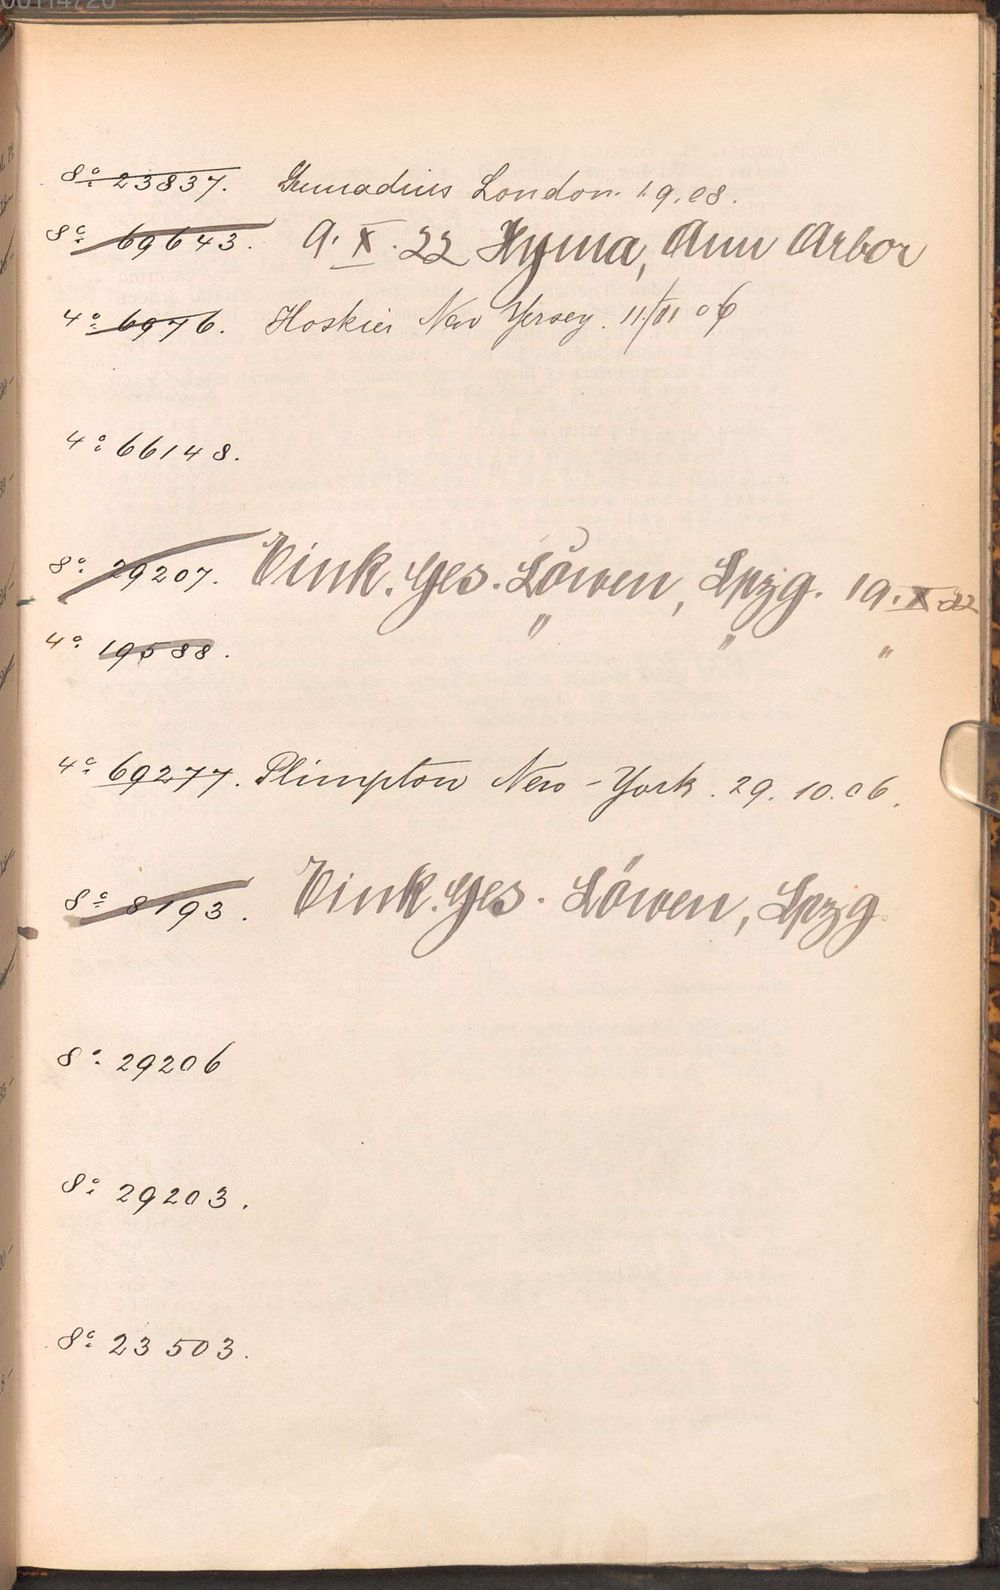 8° 23837. Gennadius London. 1.9.08.
8° 69643. 9. X. 22 Hyma, Ann Arbor
4° 6976. Hoskier New Yersey. 11/VI 06
4° 66148.
8° 29207. Eink. Ges. Löwen, Lpzg. 19. X 22
4° 19588. " " "
4° 69277. Plimpton New-York. 29. 10. 06.
8° 8193. Eink. Ges. Löwen, Lpzg.
8° 29206
8° 29203.
8° 23503.